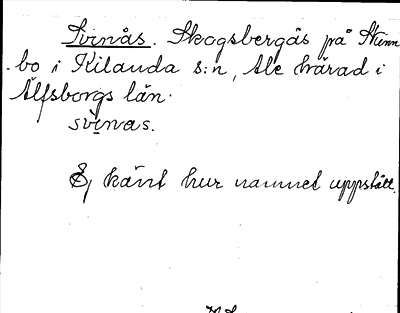 Svinås. Skogsbergås på Stenn
bo i Kilanda s:n, Ale härad i
Älfsborgs län.
svinas.
Ej känt hur namnet uppstått.